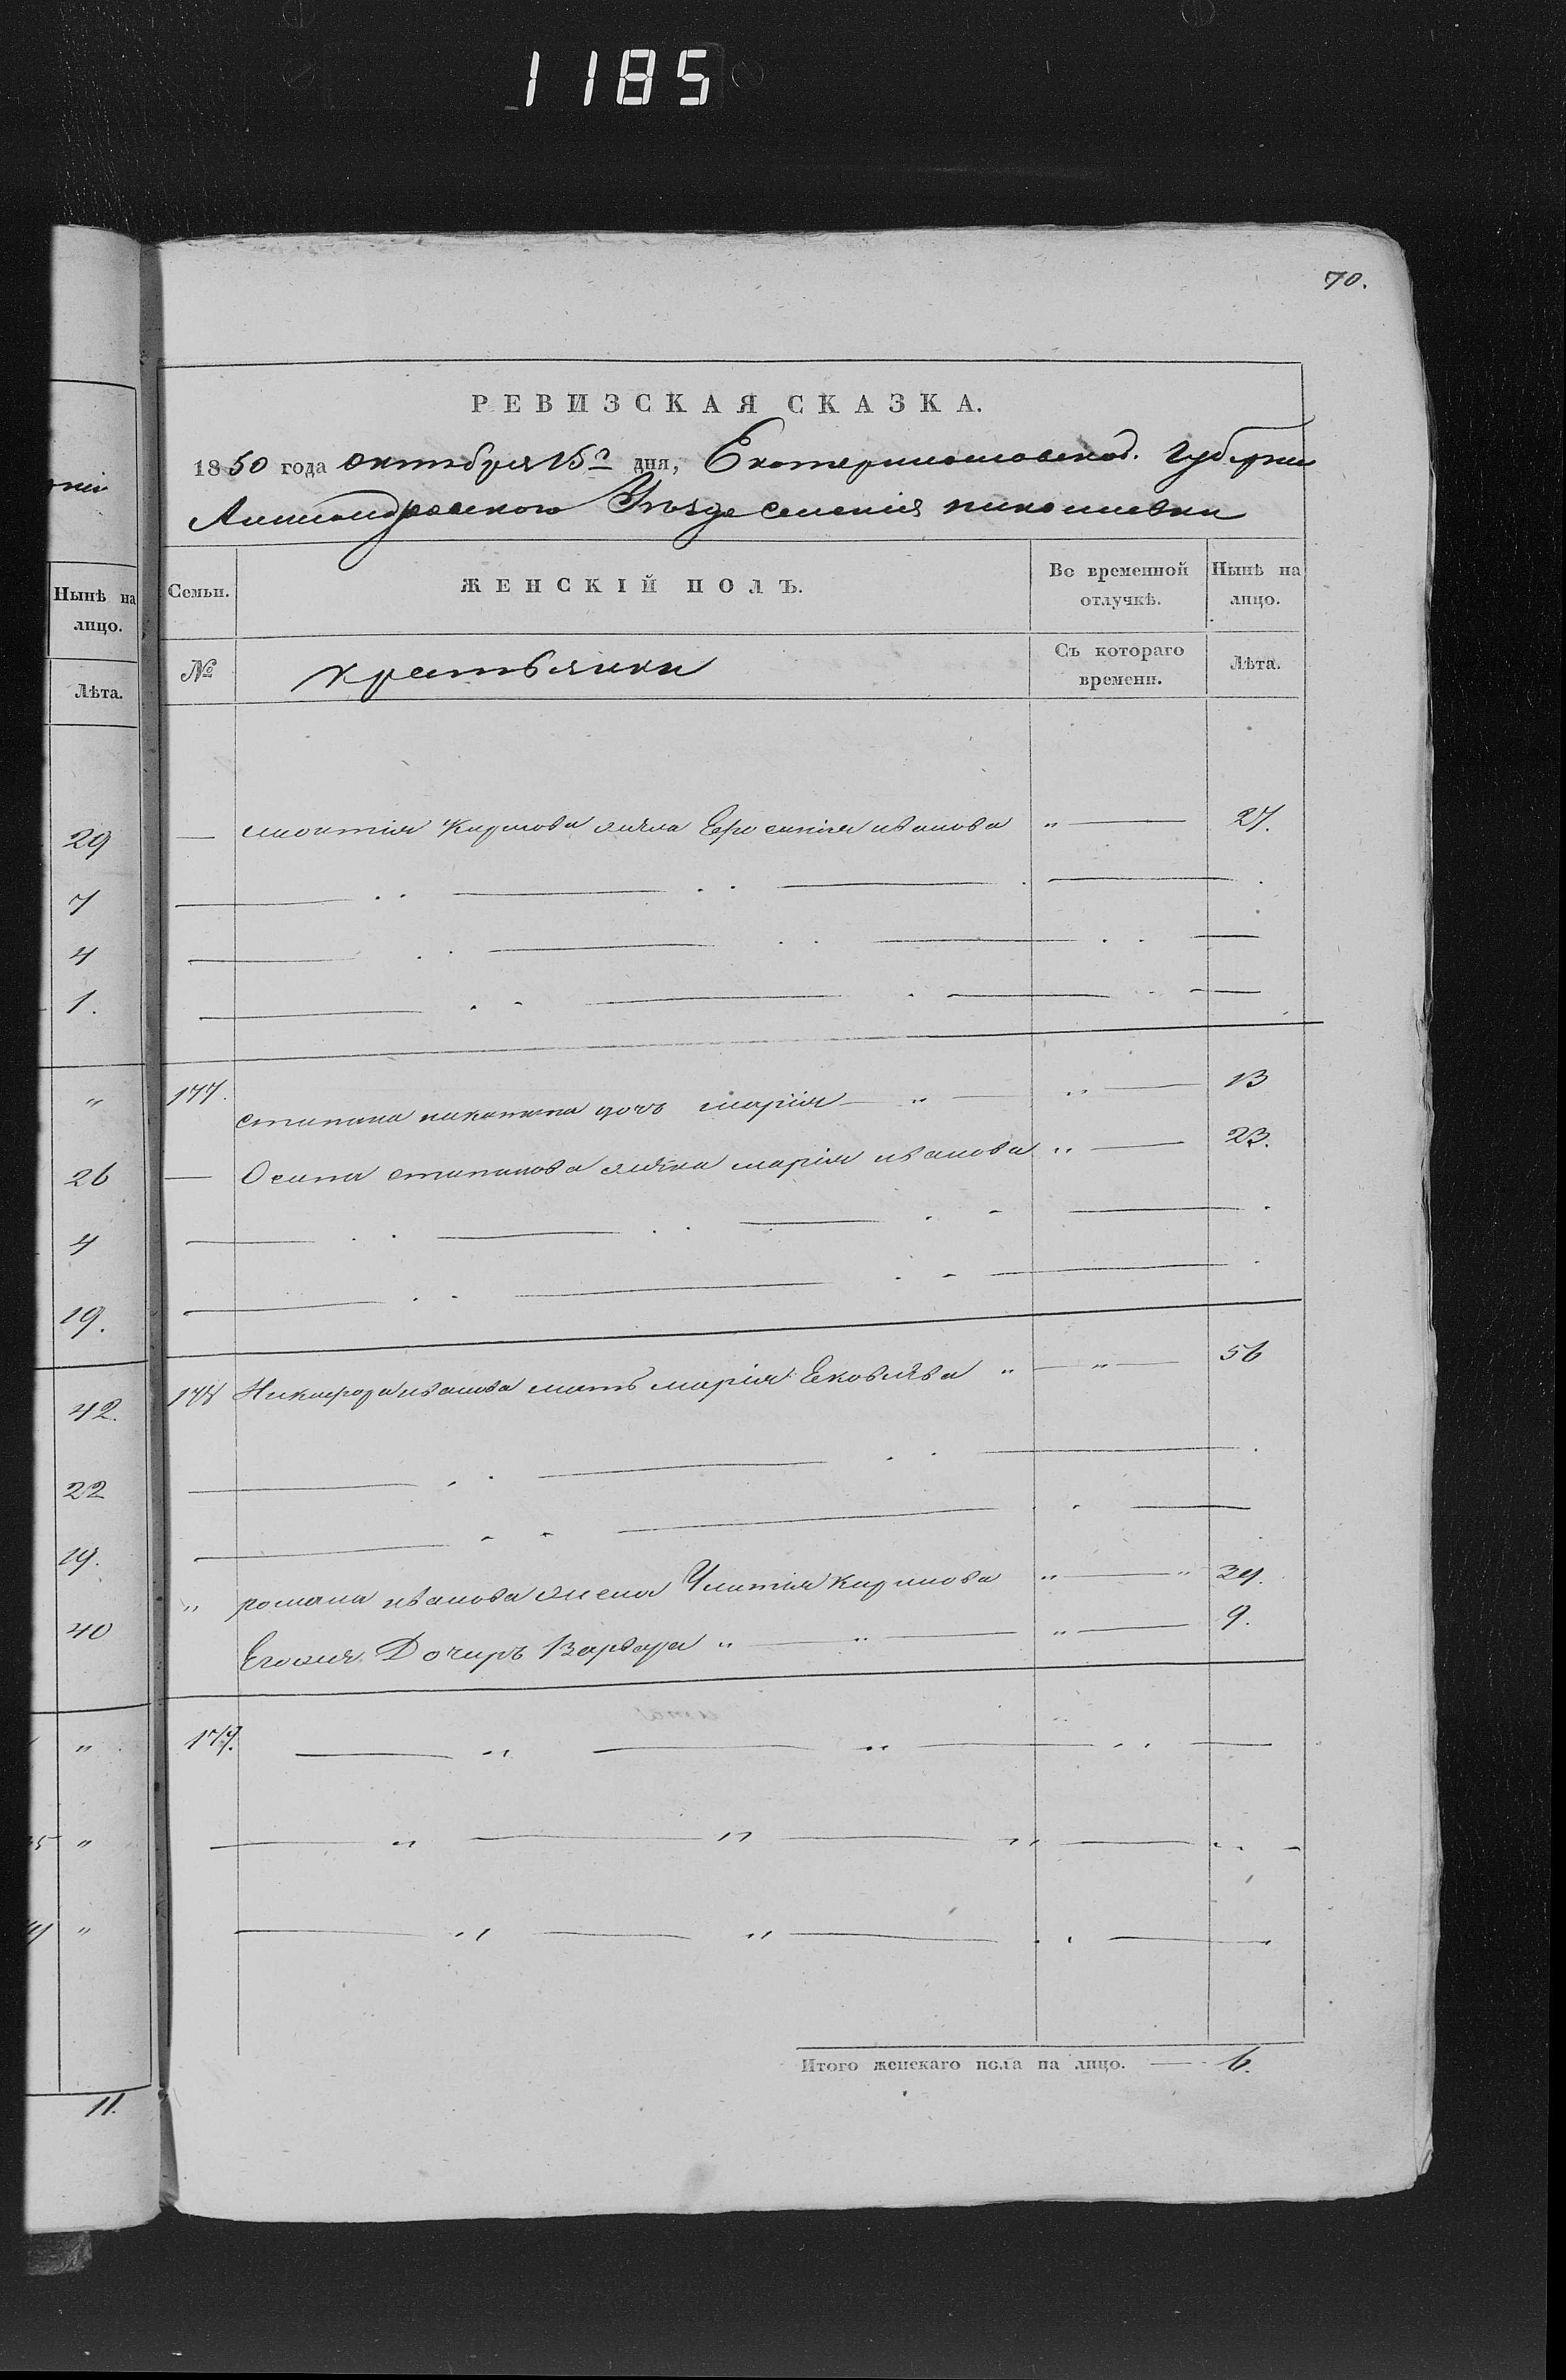 1185
70.
РЕВИЗСКАЯ СКАЗКА.
1850 года октября 15го дня, Екатеринославской Губерни
Александровского Уезда Селения николаевки
рни
Нынѣ на лицо.
Лѣта.
29
7
4
1.
"
26
4
19.
42.
22
19.
40
"
"
"
11.
Семьи. ЖЕНСКІЙ ПОЛЪ. Во временной отлучкѣ. Нынѣ на лицо.
№ крестьянки Съ котораго времени. Лѣта.
— Кирилова жена Ефросинія иванова " — 27.
177. степана никитина дочъ марія — " — " — 13
— Осипа степанова жена марія иванова " — 23.
178 Никифора иванова мать марія Ековлѣва " — " — 56
" романа иванова жена Кирилова " — " 39.
Егожия Дочиръ Варвара " — " — " — 9.
179.
Итого женскаго пола на лицо. — 6.